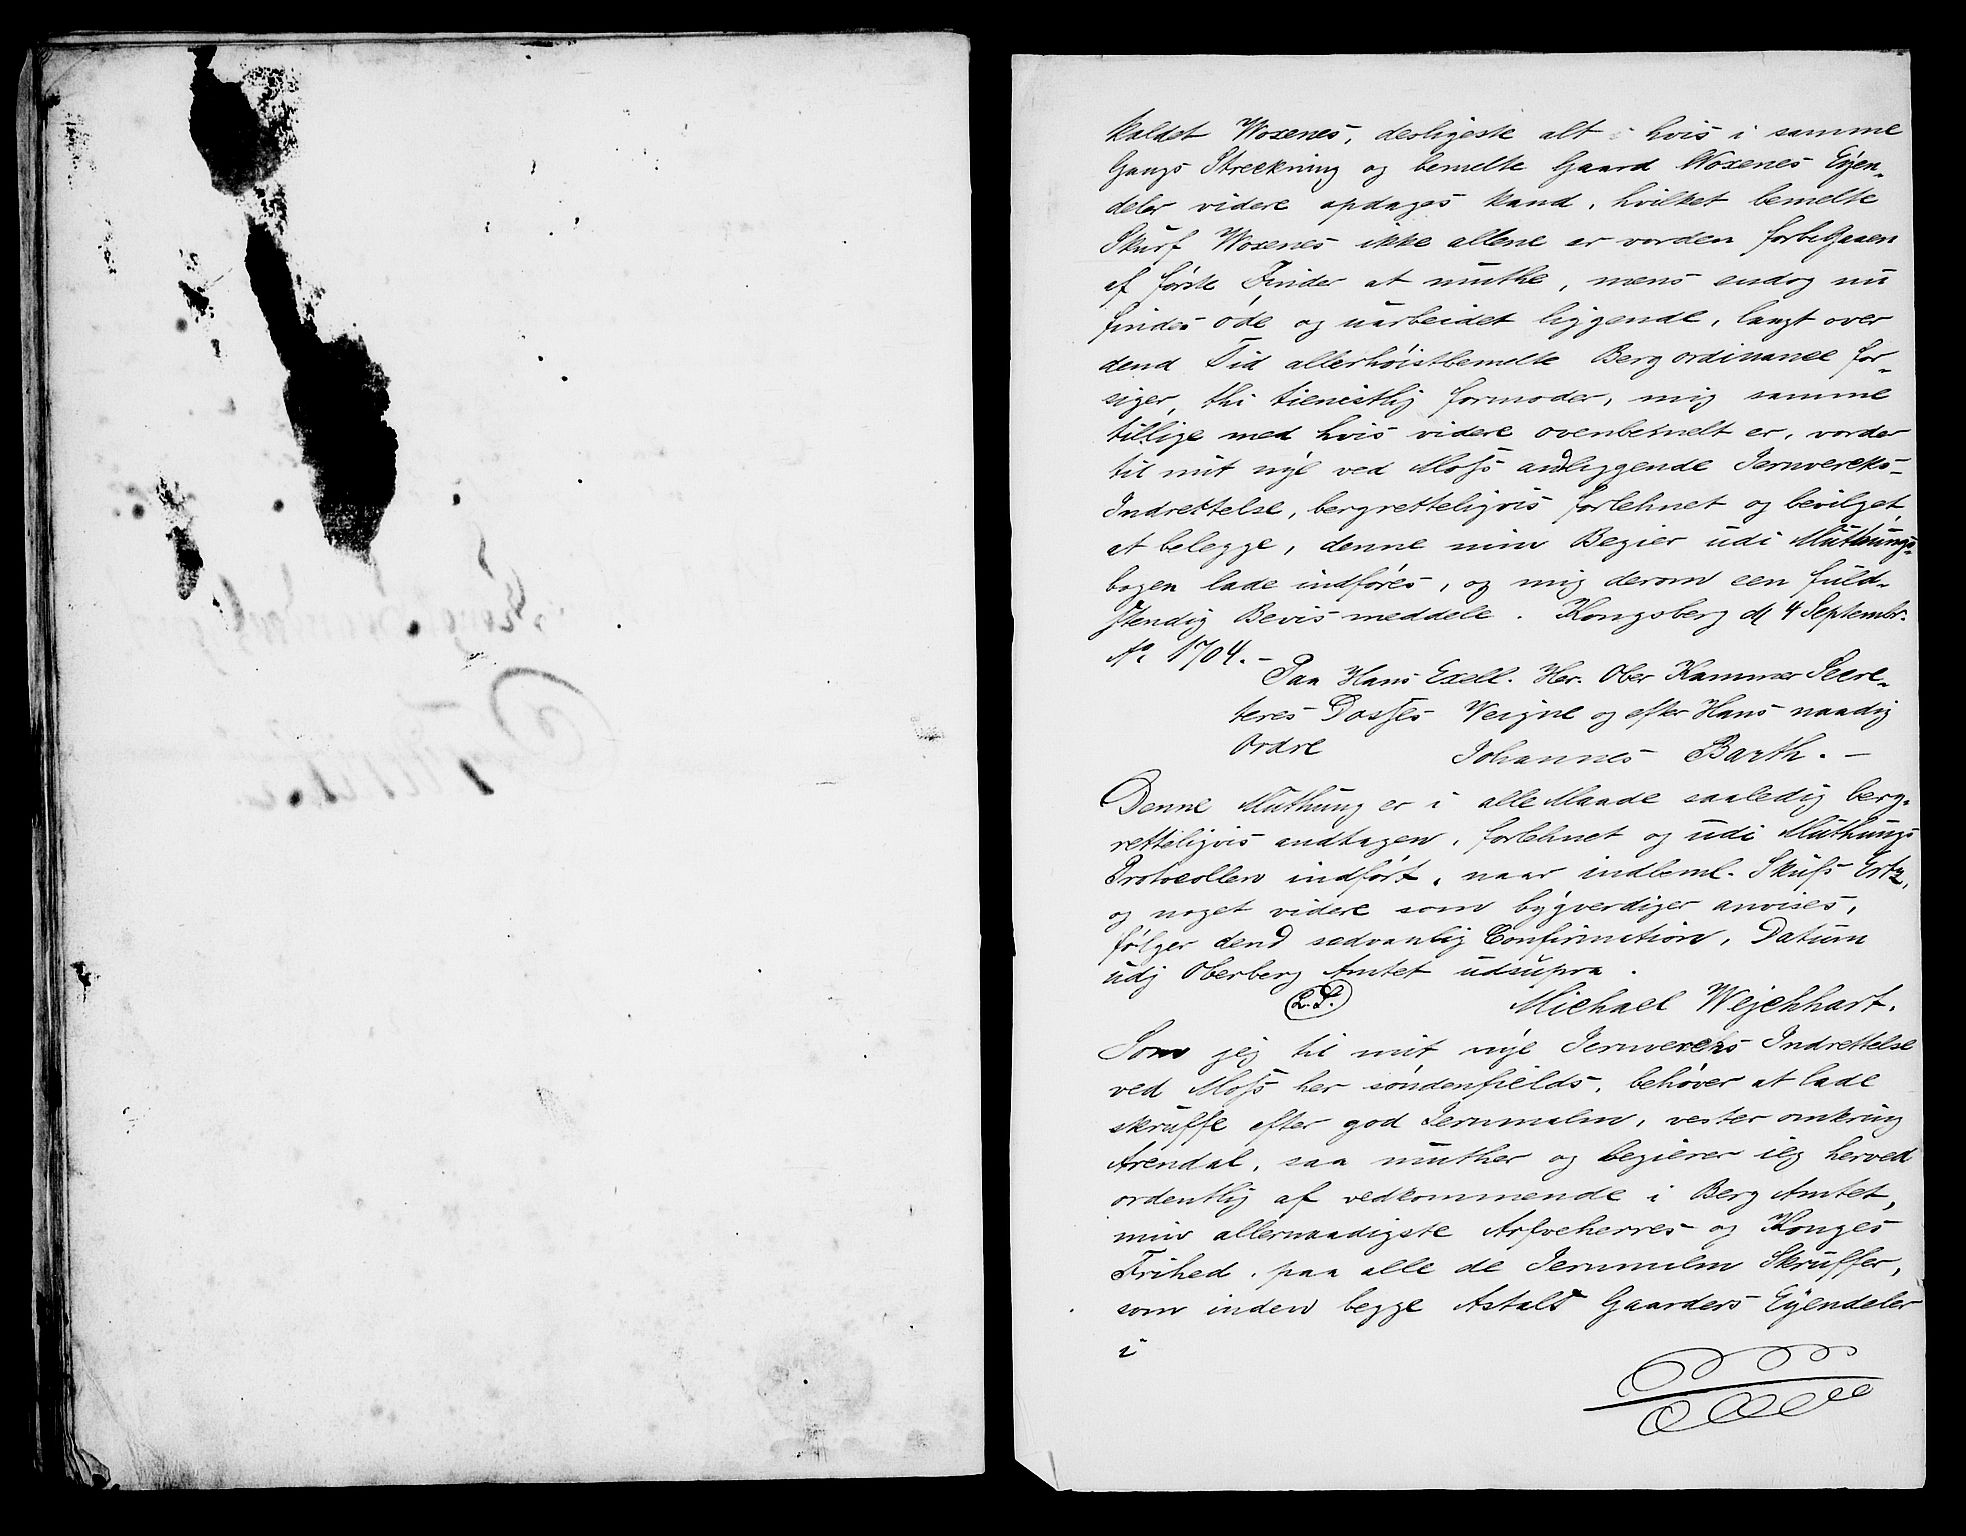 kaldet Woxenes, desligeste alt i hvis i samme
Gangs Streckning og bemelte Gaard Woxenes Ejen-
deler videre opdages kand, hvilket bemelte
Skürf Woxenes ikke allene er vorden forbigaaen
af förste Finder at muthe, mens endog nu
findes öde og üarbeidet liggende, langt over
dend Tid allerhöistbemelte Bergordinance for-
siger, thi tienistlig formoder, mig samme
tillige med hvis videre ovenbemelt er, vorder
til mit nÿe ved Moss anliggende Jernvercks-
Indrettelse, bergretteligvis forlehnet og bevilget,
at belegge, denne min Begier udi Müthüngs-
bogen lade indföres, og mig derom een füld-
stendig Bevis meddele. Kongsberg d. 4 Septembr.
Ao. 1704.-
Paa Hans Excell. Her. Ober Kammer Secre-
teres Dosses Veigne og efter Hans naadig
Ordre Johannes Barth. -
Denne Müthüng er i alle Maade saaledig berg-
retteligvis andtagen, forlehnet og üdi Müthüngs
Protocollen indfört, naar indbeml. Skürfs Ertz,
og noget videre som bÿgverdiger anvises,
fölger dend sedvanlig Confirmation, Datüm
üdj Oberberg Amtet üdsüpra.
L.S. Michael Wejchhart.
Som jeg til mit nÿe Jernvercks Indrettelse
ved Moss her söndenfields, behöver at lade
skürffe efter god Jernmalm, vester omkring
Arendal, saa muther og begierer ieg herved
ordentlig af vedkommende i Berg Amtet,
min allernaadigste Arfveherres og Konges
Frihed, paa alle de Jernmalm Skürffer,
som inden begge Astals Gaarders Eÿendeler
i